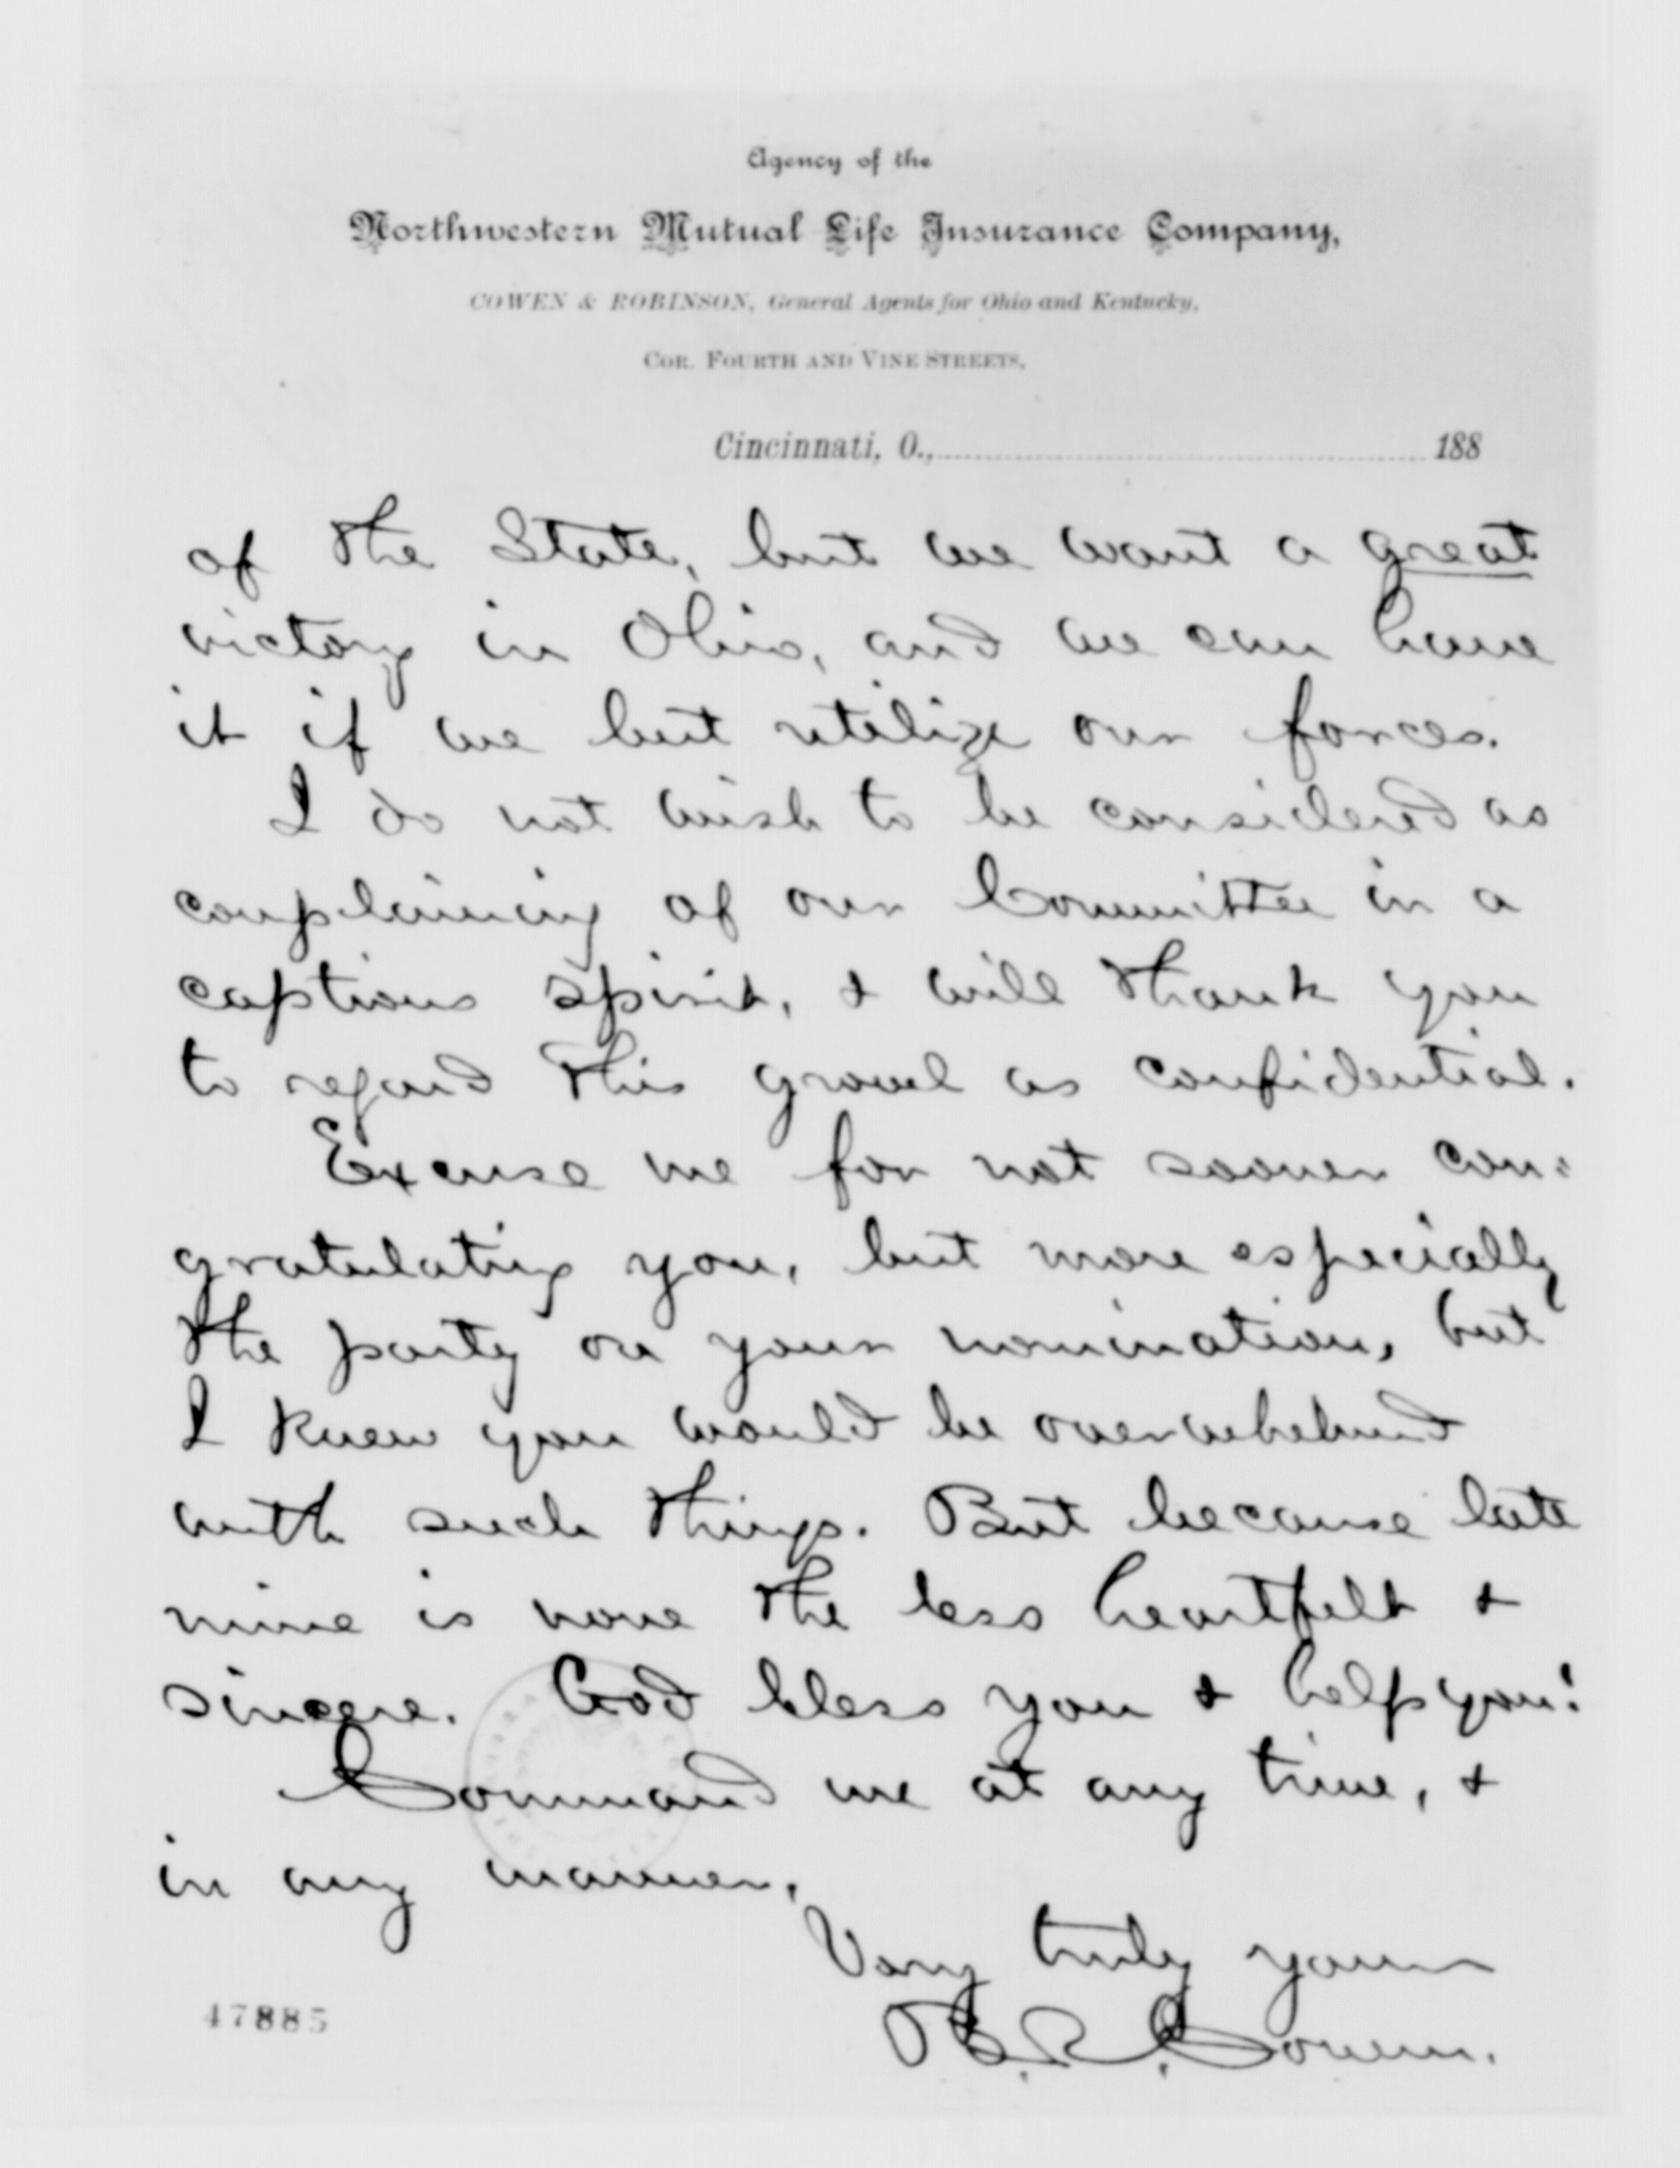 Agency of the
Northwestern Mutual Life Insurance Company,
COWEN & ROBINSON, General Agents for Ohio and Kentucky,
COR. FOURTH AND VINE STREETS,
Cincinnati, O., 188
of the State, but we want a great
victory in Ohio, and we can have
it if we but utilize our forces.
I do not wish to be considered as
complaining of our Committee in a
captious spirit, & will thank you
to regard this growl as confidential.
Excuse me for not sooner con-
gratulating you, but more especially
the party on your nomination, but
I knew you would be overwhelmed
with such things. But because late
mine is none the less heartfelt &
sincere. God bless you & help you!
Command me at any time, &
in any manner.
Very truly yours
B. R. Cowen.
47885